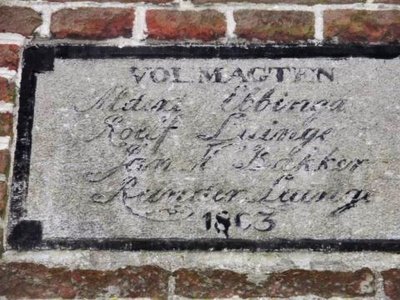 VOLMAGTEN
Ebbinga
Roelf Luinge
Jan Bakker
Reinder Luinge
1803